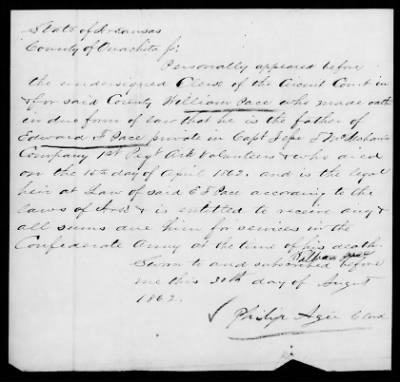 State of Arkansas
County of Ouachita ss:
Personally appeared before
the undersigned Clerk of the Circuit Court in
& for said County William Pace who made oath
in due form of law that he is the father of
Edward F Pace private in Capt
Company 1st Regt Ark Volunteers & who died
on the 15th day of April 1862. and is the legal
heir at Law of said E F Pace according to the
laws of Ark & is entitled to receive any &
all sums due him for services in the
Confederate Army at the time of his death.
William Pace
Sworn to and subscribed before
me this 30th day of August
1862.
Philip Agee Clerk